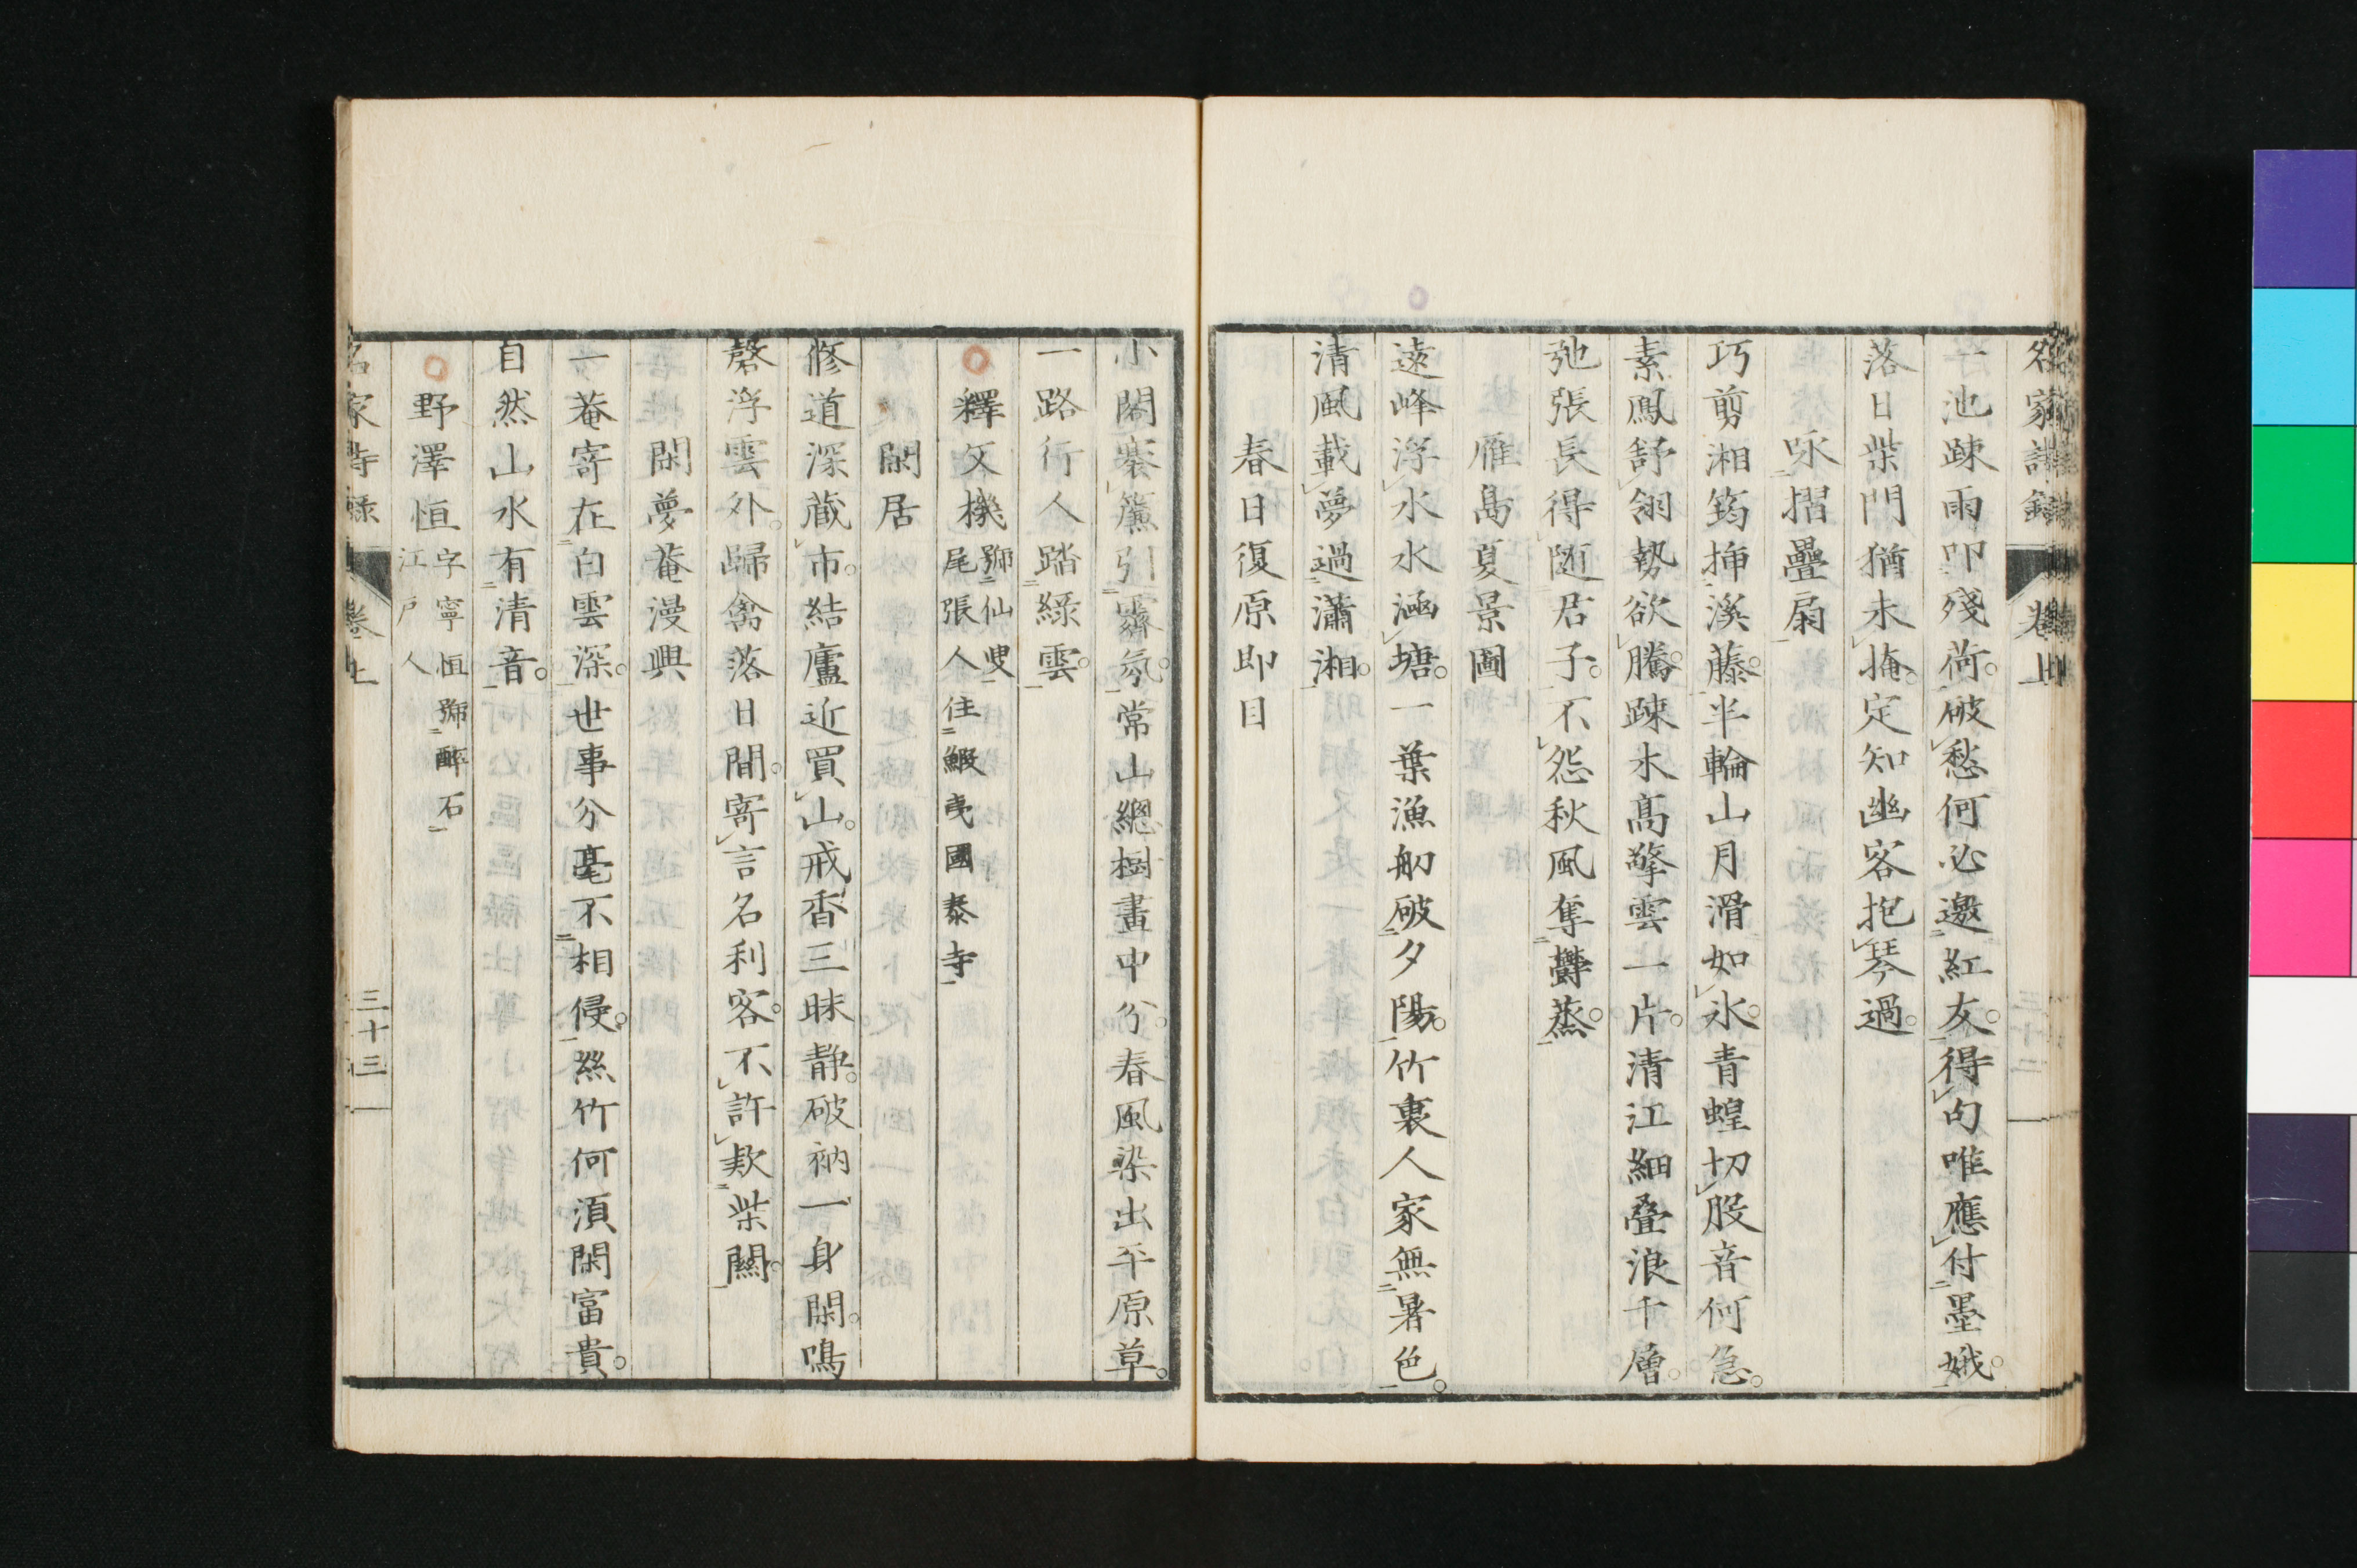 名家詩錄 卷上
一池疎雨叩殘荷。破愁何必邀紅友。得句唯應付墨娥。
落日柴門猶未掩。定知幽客抱琴過。
咏摺疊扇
巧剪湘筠揷溪藤。半輪山月滑如氷。青蝗切股音何急。
素鳳舒翎勢欲騰。疎木高擎雲一片。清江細叠浪千層。
弛張長得随君子。不怨秋風奪欝蒸。
雁島夏景圖
遠峰浮水水涵塘。一葉漁舠破夕陽。竹裏人家無暑色。
清風載夢過瀟湘。
春日復原即目
小閣褰簾引霽氛。常山總樹畫中分。春風染出平原草。
一路行人踏綠雲。
釋文機 號仙叟
尾張人住鰕夷國泰寺
閑居
修道深藏市。結廬近買山。戒香三昧靜。破衲一身閑。鳴
磬浮雲外。歸禽落日間。寄言名利客。不許欵柴關。
閑夢菴漫興
一菴寄在白雲深。世事分毫不相侵。絲竹何須閑富貴。
自然山水有清音。
野澤恒 字寧恒號醉石
江戶人
名家詩錄 卷上 三十三